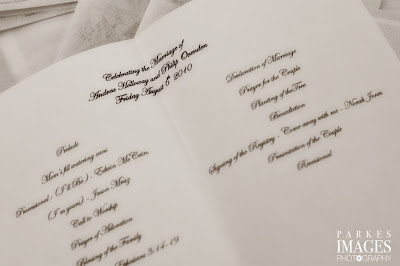 Celebrating the Marriage of
Andrea Holloway and Philip Quenden
Friday August 6th 2010
Prelude
Processional : (I'll Be) - Edwin McCain,
(I'm yours) - Jason Mraz
Call to Worship
Prayer of Adoration
Blessing of the Family
Ephesians 3:14-19
Declaration of Marriage
Prayer for the Couple
Planting of the Tree
Benediction
Signing of the Registry - Come away with me - Norah Jones
Presentation of the Couple
Recessional
PARKES
IMAGES
PHOTOGRAPHY